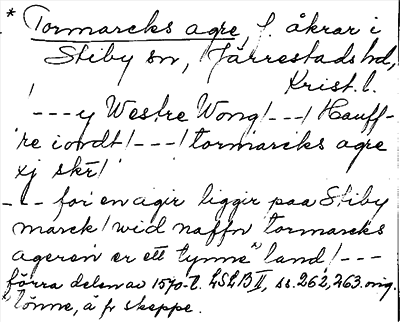 * Tormarcks agre, f. åkrar i
Stiby sn, Järrestads hd,
Krist. l.
! ---y Westre Wong! ---! Hauff-
're iordt! ---! tormarcks agre
xj skr!
--- for en agir liggir paa Stiby
marck! wid naffn tormarcks
ageren er ett tynne¹⁾ land! ---
förra delen av 1570-t. LSLB II, ss. 262, 263. orig.
¹⁾ tönne, å fr skeppe.